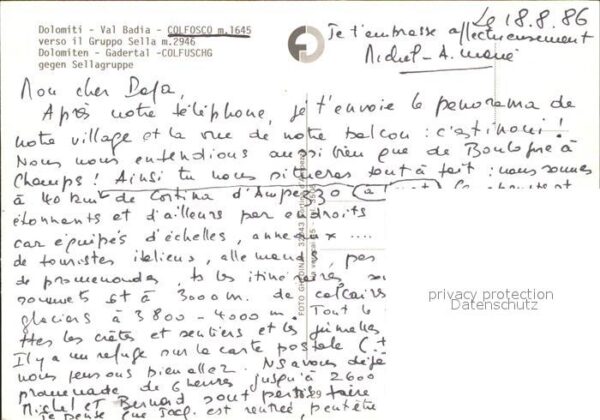 Dolomiti - Val Badia - COLFOSCO m.1645
verso il Gruppo Sella m.2946
Dolomiten - Gadertal - COLFUSCHG
gegen Sellagruppe
Le 18.8.86
Je t'embrasse affectueusement
Michel - A. Marie
Mon cher Papa,
Après notre téléphone, je t'envoie le panorama de
notre village et la vue de notre balcon : c'est inouï !
Nous nous entendions aussi bien que de Boulogne à
Champs ! Ainsi tu nous situeras tout à fait : nous sommes
à 40 km de Cortina d'Ampezzo (à
étonnants et d'ailleurs par endroits
car équipés d'échelles, anneaux ....
de touristes italiens, allemands, pas
de promenades, ts les itinéraires
sommets st à 3000 m. de calcaires
glaciers à 3800 - 4000 m. Tout le
ttes les crêtes et sentiers et les jumelles
Il y a un refuge sur la carte postale
nous pensons bien allez. NS avons déjà
promenade de 6 heures jusqu'à 2600
Michel et Bernard sont partis faire
je pense que Jacq. est rentrée, peut être
FOTO GHEDINA
29
privacy protection
Datenschutz